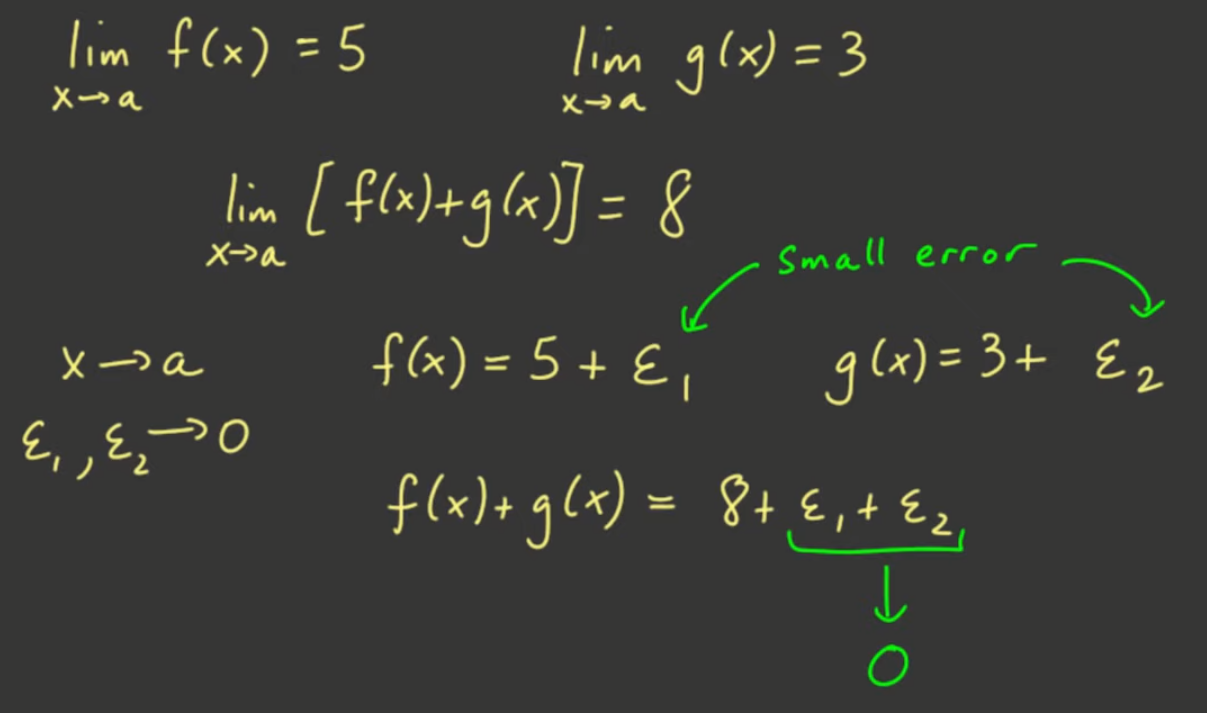 lim x→a f(x) = 5    lim x→a g(x) = 3
lim x→a [f(x)+g(x)] = 8
small error
x→a    f(x) = 5 + ε₁    g(x) = 3 + ε₂
ε₁, ε₂→0
f(x)+g(x) = 8+ ε₁+ ε₂
0